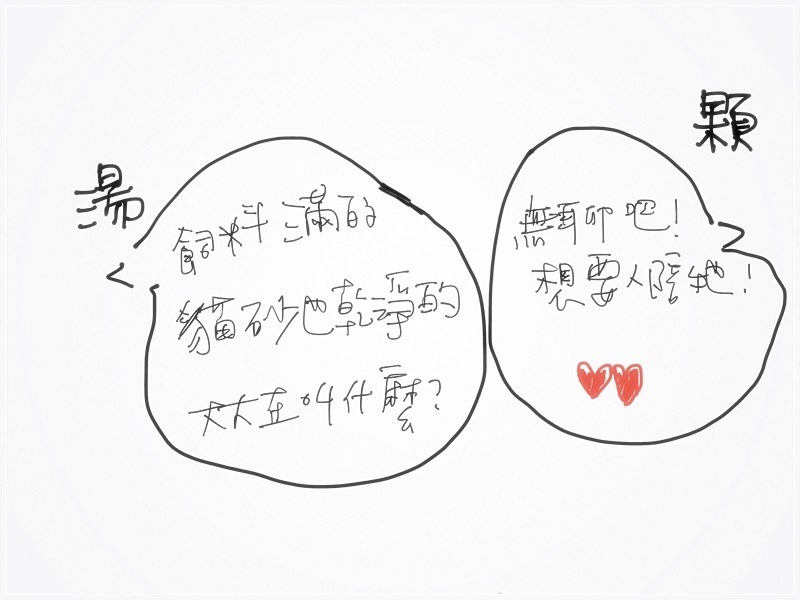 湯
飼料滿的
貓砂也乾淨的
大大在叫什麼？
顆
無聊吧！
想要人陪牠！